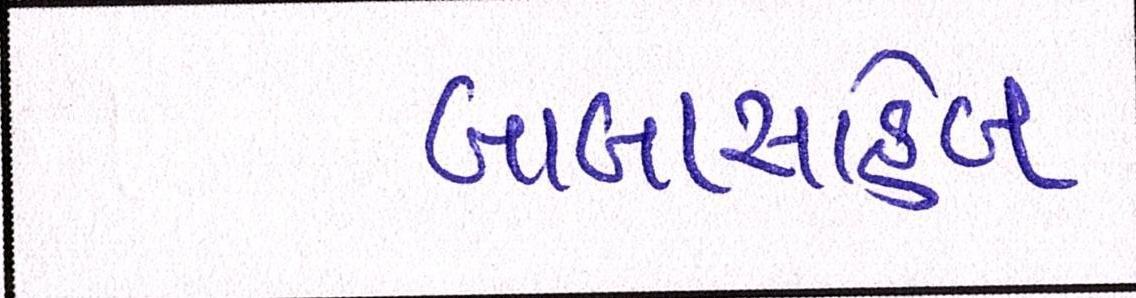 બાબાસાહેબ